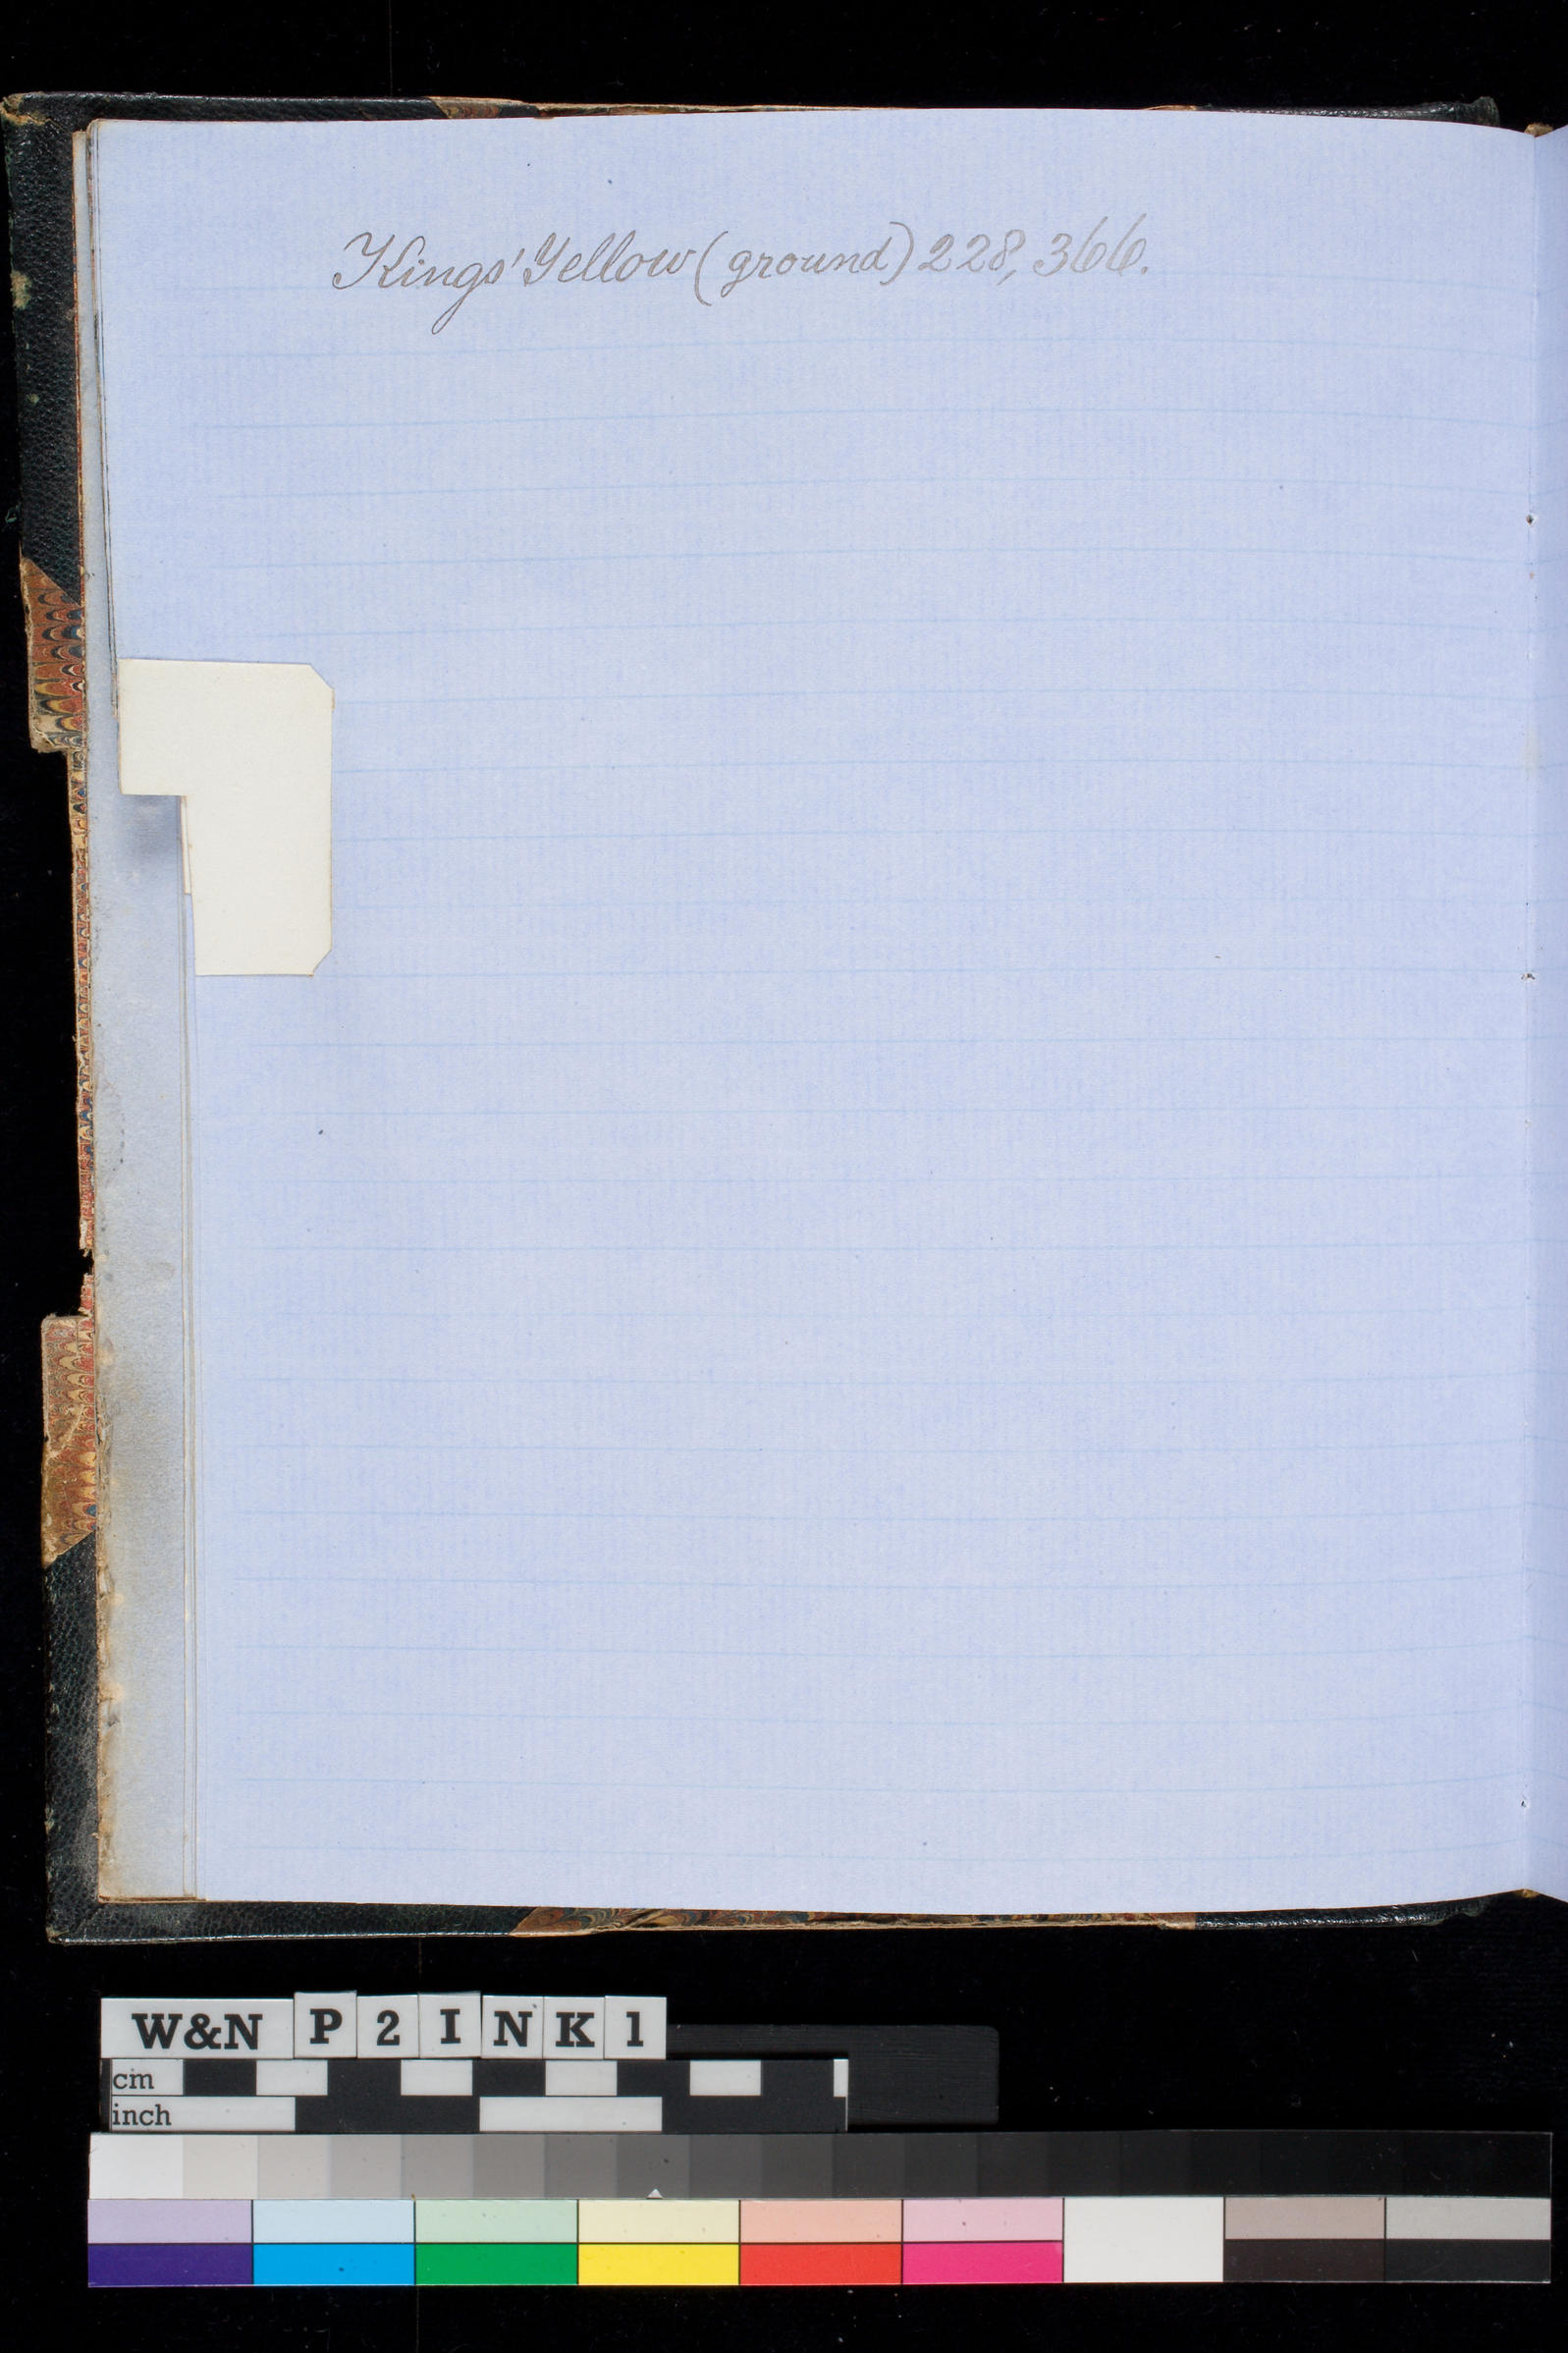 Kings' Yellow (ground) 228, 366.
W&N P2INK1
cm
inch